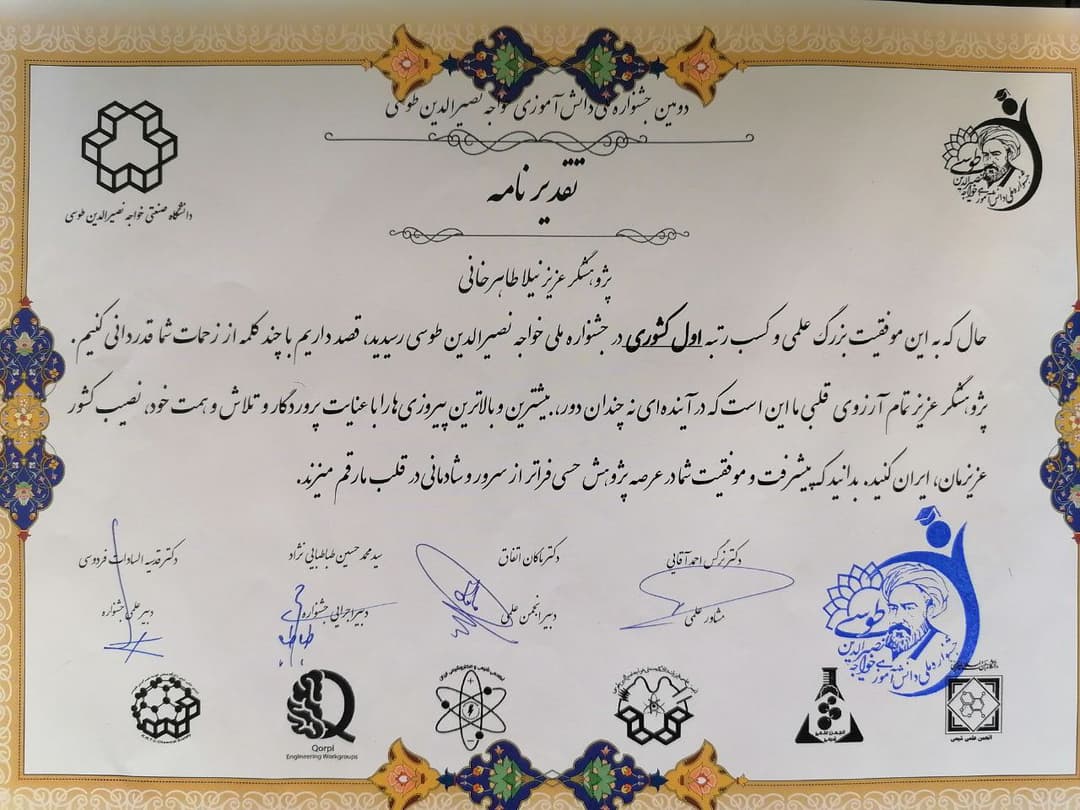 دومین جشنواره ملی دانش آموزی خواجه نصیرالدین طوسی
تقدیر نامه
دانشگاه صنعتی خواجه نصیرالدین طوسی
طوسی
جشنواره ملی دانش آموزی خواجه نصیرالدین
پژوهشگر عزیز نیلا طاهرخانی
حال که به این موفقیت بزرگ علمی و کسب رتبه اول کشوری در جشنواره ملی خواجه نصیرالدین طوسی رسیدید، قصد داریم با چند کلمه از زحمات شما قدردانی کنیم.
پژوهشگر عزیز تمام آرزوی قلبی ما این است که در آینده‌ای نه چندان دور، بیشترین و بالاترین پیروزی ها را با عنایت پروردگار و تلاش و همت خود، نصیب کشور
عزیزمان، ایران کنید. بدانید که پیشرفت و موفقیت شما در عرصه پژوهش حسی فراتر از سرور و شادمانی در قلب ما رقم میزند.
دکتر نرگس احمد آقایی
مشاور علمی
دکتر ماکان اتفاق
دبیر انجمن علمی
سید محمد حسین طباطبایی نژاد
دبیر اجرایی جشنواره
دکتر قدسیه السادات فردوسی
دبیر علمی جشنواره
طوسی
جشنواره ملی دانش آموزی خواجه نصیرالدین
انجمن علمی شیمی
Qorpi
Engineering Workgroups